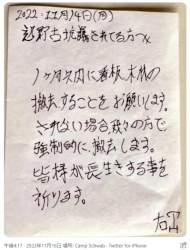 2022.11月14日(月)
辺野古抗議されてる方へ
1ヶ月以内に看板、木杭の
撤去することをお願いします。
されない場合我々の方で
強制的に撤去します。
皆様が長生きする事を
祈ります。
午後6:17 · 2022年11月15日 場所: Camp Schwab · Twitter for iPhone